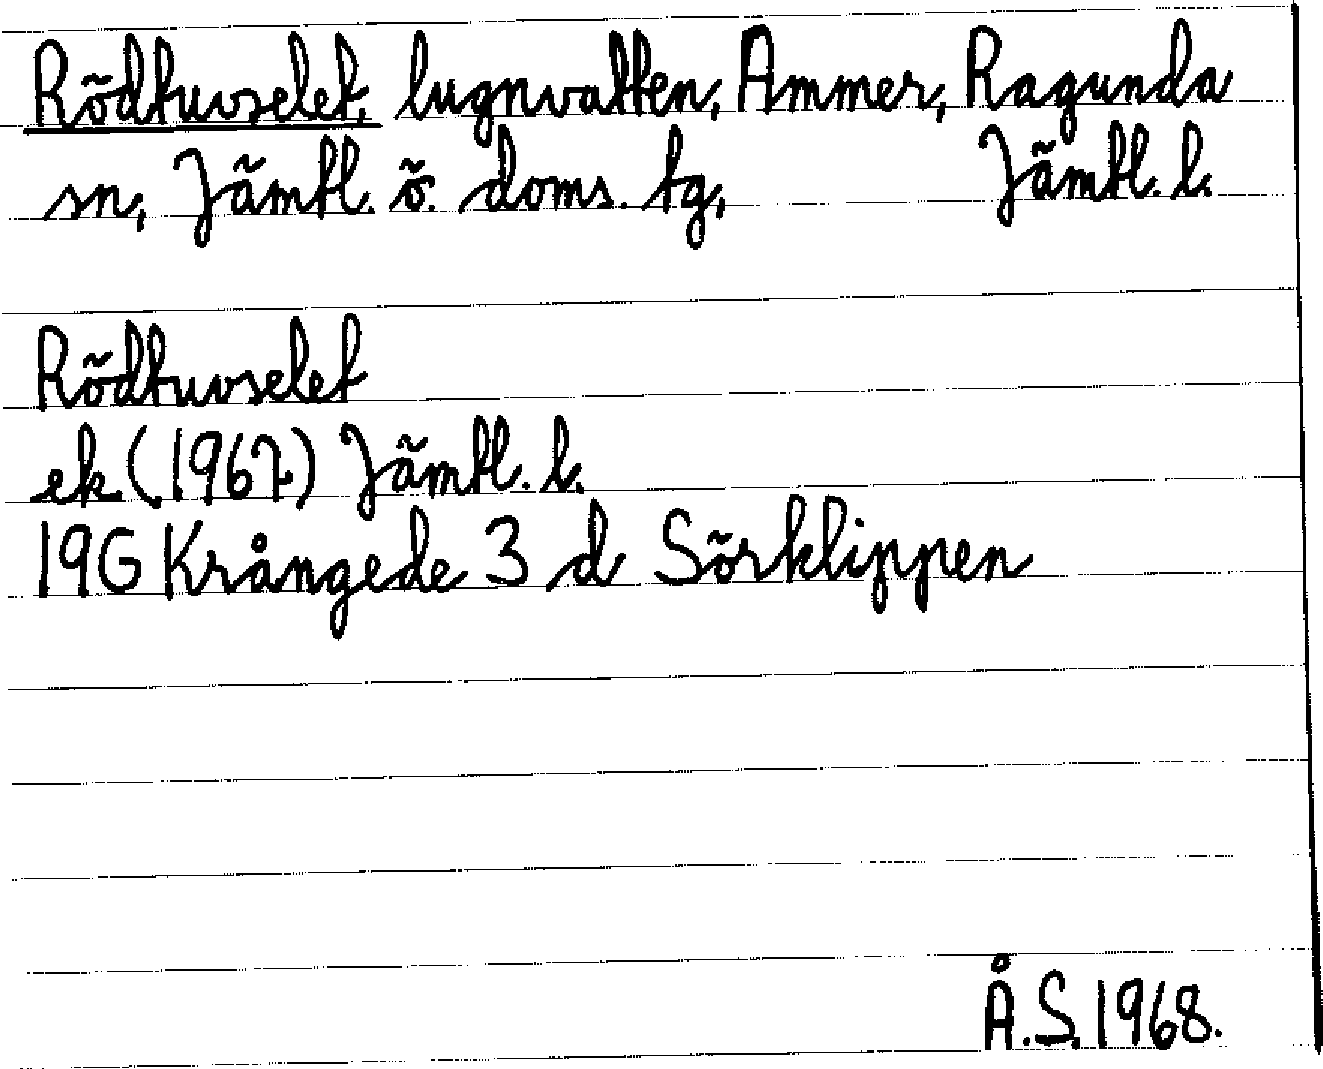 Rödtuvselet, lugnvatten, Ammer, Ragunda
sn, Jämtl. ö. doms. tg, Jämtl. l.
Rödtuvselet
ek (1967) Jämtl. l.
19G Krångede 3 d Sörklippen
Å.S. 1968.